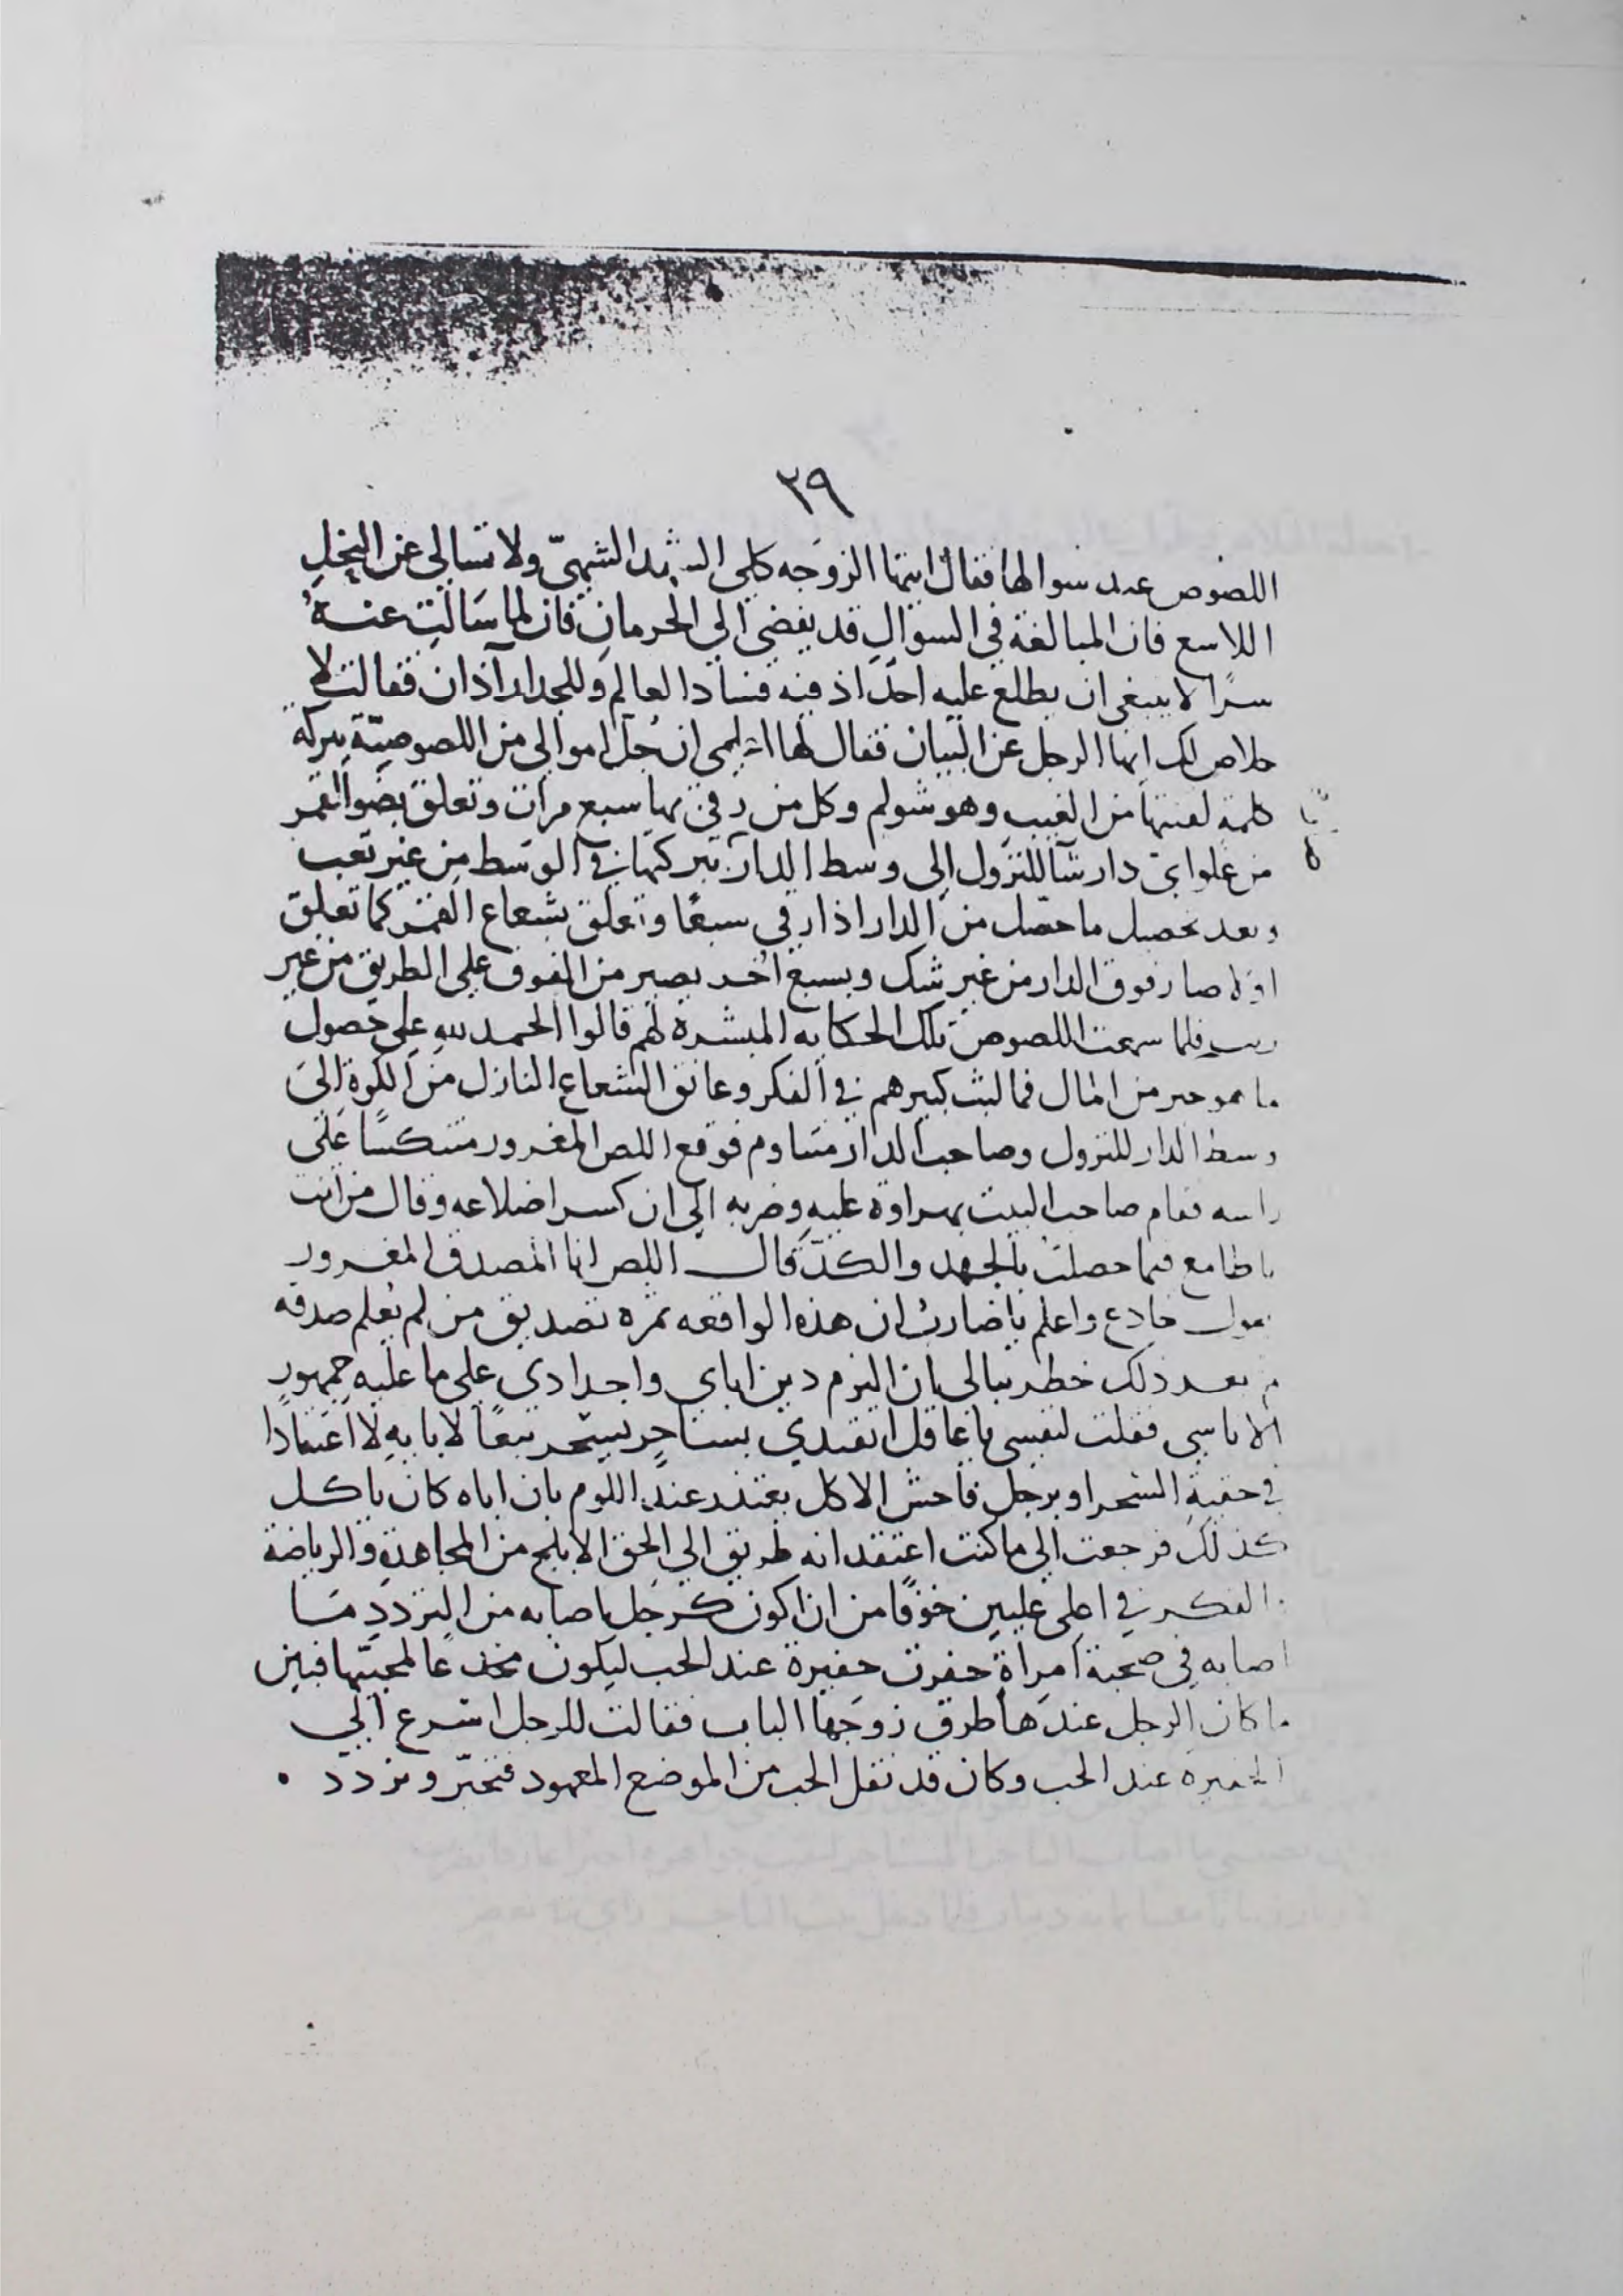 ٢٩
اللصوص عند سوالها فقال ايتها الزوجه كلى الشهد الشهىّ ولا تسالى عن النحل
اللاسع فان المبالغة في السوال قد يفضى الى الحرمان فان لما سالت عنه
سرًا لا ينبغى ان يطلع عليه احدًا اذ فيه فساد العالم وللجدار آذان فقالت لا
خلاص لك ايها الرجل عن البيان فقال لها اعلمى ان جل اموالى من اللصوصيّة ببركه
كلمة لقنتها من الغيب وهو شولم وكل من رقى بها سبع مرات وتعلق بضو القمر
من علو اىّ دار شآ للنزول الى وسط الدار ببركتها في الوسط من غير تعب
وبعد تحصيل ما حصل من الدار اذا رقى سبعًا وتعلق بشعاع القمر كما تعلق
اولا صار فوق الدار من غير شك وبسبع اخر يصير من الفوق على الطريق من غير
ريب فلما سمعت اللصوص تلك الحكايه المبشرة لهم قالوا الحمد لله على حصول
ما هو خير من المال فما لبث كبيرهم في الفكر وعانق الشعاع النازل من الكوة الى
وسط الدار للنزول وصاحب الدار متناوم فوقع اللص المغرور متنكسًا على
راسه فقام صاحب البيت بهراوة عليه وضربه الى ان كسر اضلاعه وقال من انت
يا طامع فيما حصلت بالجهد والكدّ قال اللص انا المصدق المغرور
بقول خادع واعلم يا ضارب ان هذه الواقعه ثمرة تصديق من لم يعلم صدقه
ثم بعد ذلك خطر ببالى بان التزم دين اباى واجدادى على ما عليه جمهور
الاناسى فقلت لنفسى يا عاقل اتقتدي بساحر يسحر تبعًا لابايه لا اعتمادًا
في حقية السحر او برجل فاحش الاكل يعتذر عند اللوم بان اباه كان ياكل
كذلك فرجعت الى ما كنت اعتقد انه طريق الى الحق الابلج من المجاهدة والرياضة
والفكر في اعلى عليين خوفًا من ان اكون كرجل اصابه من التردد ما
اصابه في صحبة امراةٍ حفرت حفيرة عند الحب ليكون مخدعًا لمحبّتها فبين
ما كان الرجل عندها طرق زوجها الباب فقالت للرجل اسرع الى
الحفيرة عند الحب وكان قد نقل الحب من الموضع المعهود فتحيّر وتردد